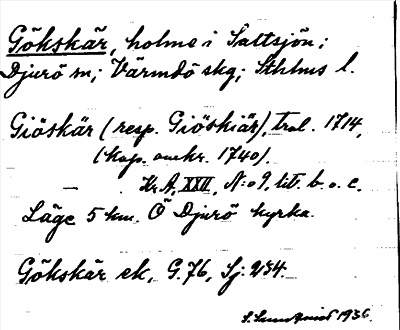 Gökskär, holme i Saltsjön;
Djurö sn; Värmdö skg; Sthlms l.
Giöskär (resp. Giöskiär), tral. 1714,
(kop. omkr. 1740).
— Kr.A, XXII, N:o 9, lit. b. o. c.
Läge 5 km. Ö Djurö kyrka.
Gökskär ek, G.76, Sj:
1936.